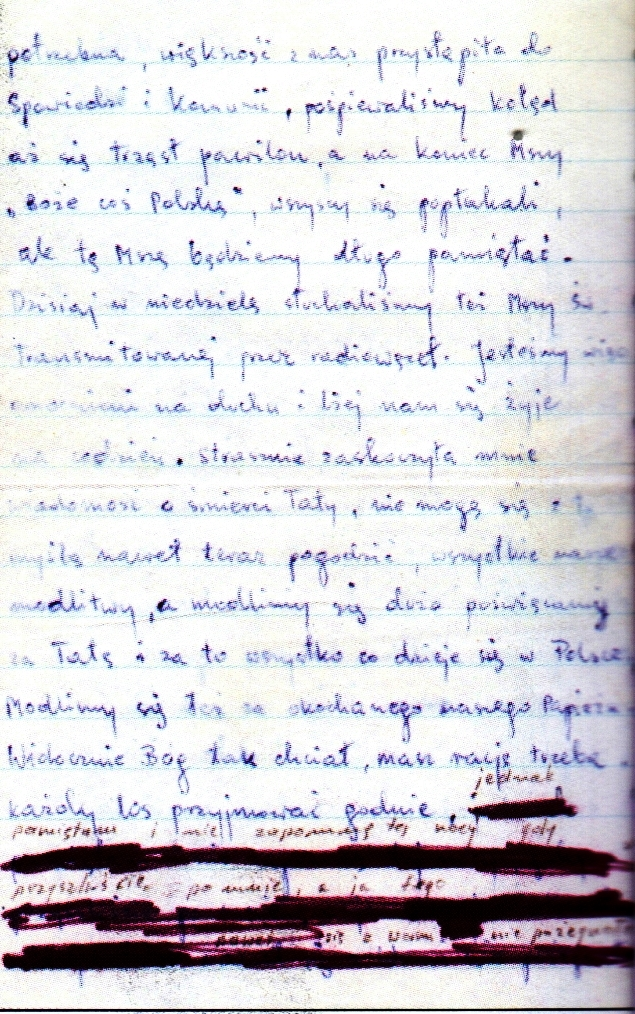 potrzebna, większość z nas przystąpiła do
Spowiedzi i Komunii, pośpiewaliśmy kolęd
aż się trząsł pawilon, a na koniec Mszy
„Boże coś Polskę", wszyscy się popłakali,
ale tę Mszę będziemy długo pamiętać.
Dzisiaj w niedzielę słuchaliśmy też Mszy św.
transmitowanej przez radiowęzeł. Jesteśmy więc
na duchu i lżej nam się żyje
na codzień. Strasznie zaskoczyła mnie
wiadomość o śmierci Taty, nie mogę się z tą
myślą nawet teraz pogodzić, wszystkie nasze
modlitwy, a modlimy się dużo poświęcamy
za Tatę i za to wszystko co dzieje się w Polsce.
Modlimy się też za ukochanego naszego Papieża.
Widocznie Bóg tak chciał, masz rację trzeba
każdy los przyjmować godnie, jednak
pamiętam i nie zapomnę tej nocy gdy
przyszliście po mnie, a ja tego
nawet się z Wami nie pożegnałem